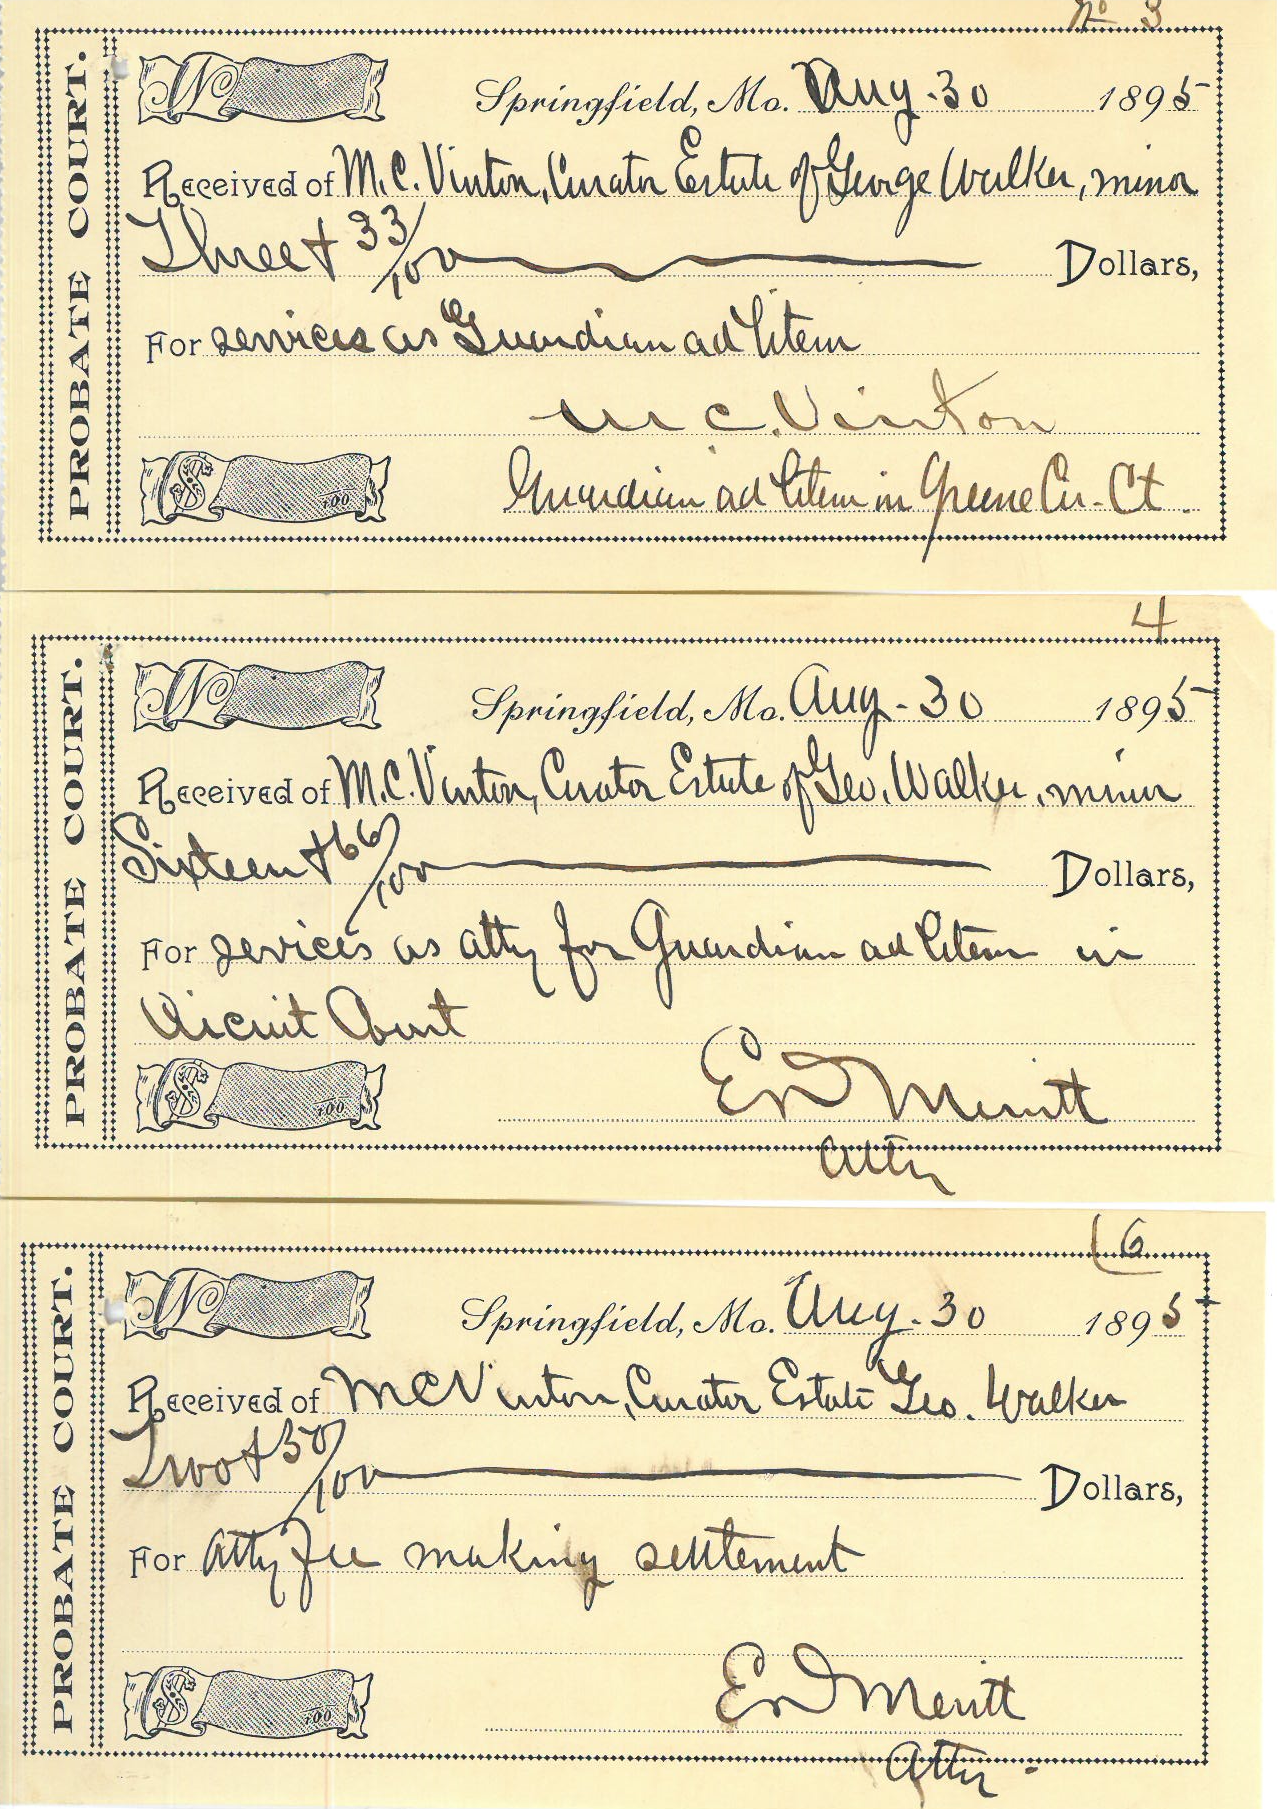 No 3
PROBATE COURT.
No
Springfield, Mo. Aug. 30 1895
Received of M.C. Vinton, Curator Estate of George Walker, minor
Three & 33/100 Dollars,
For services as Guardian ad litem
M C. Vinton
$ 100
Guardian ad litem in Greene Cir. Ct.
4
PROBATE COURT.
No
Springfield, Mo. Aug. 30 1895
Received of M.C. Vinton, Curator Estate of Geo. Walker, minor
Sixteen & 66/100 Dollars,
For sevices as atty for Guardian ad litem in
Circuit Court
$ 100
E D Merritt
Atty
6
PROBATE COURT.
No
Springfield, Mo. Aug. 30 1895
Received of M C Vinton, Curator Estate Geo. Walker
Two & 50/100 Dollars,
For Atty Fee making settlement
$ 100
E D Merritt
Atty